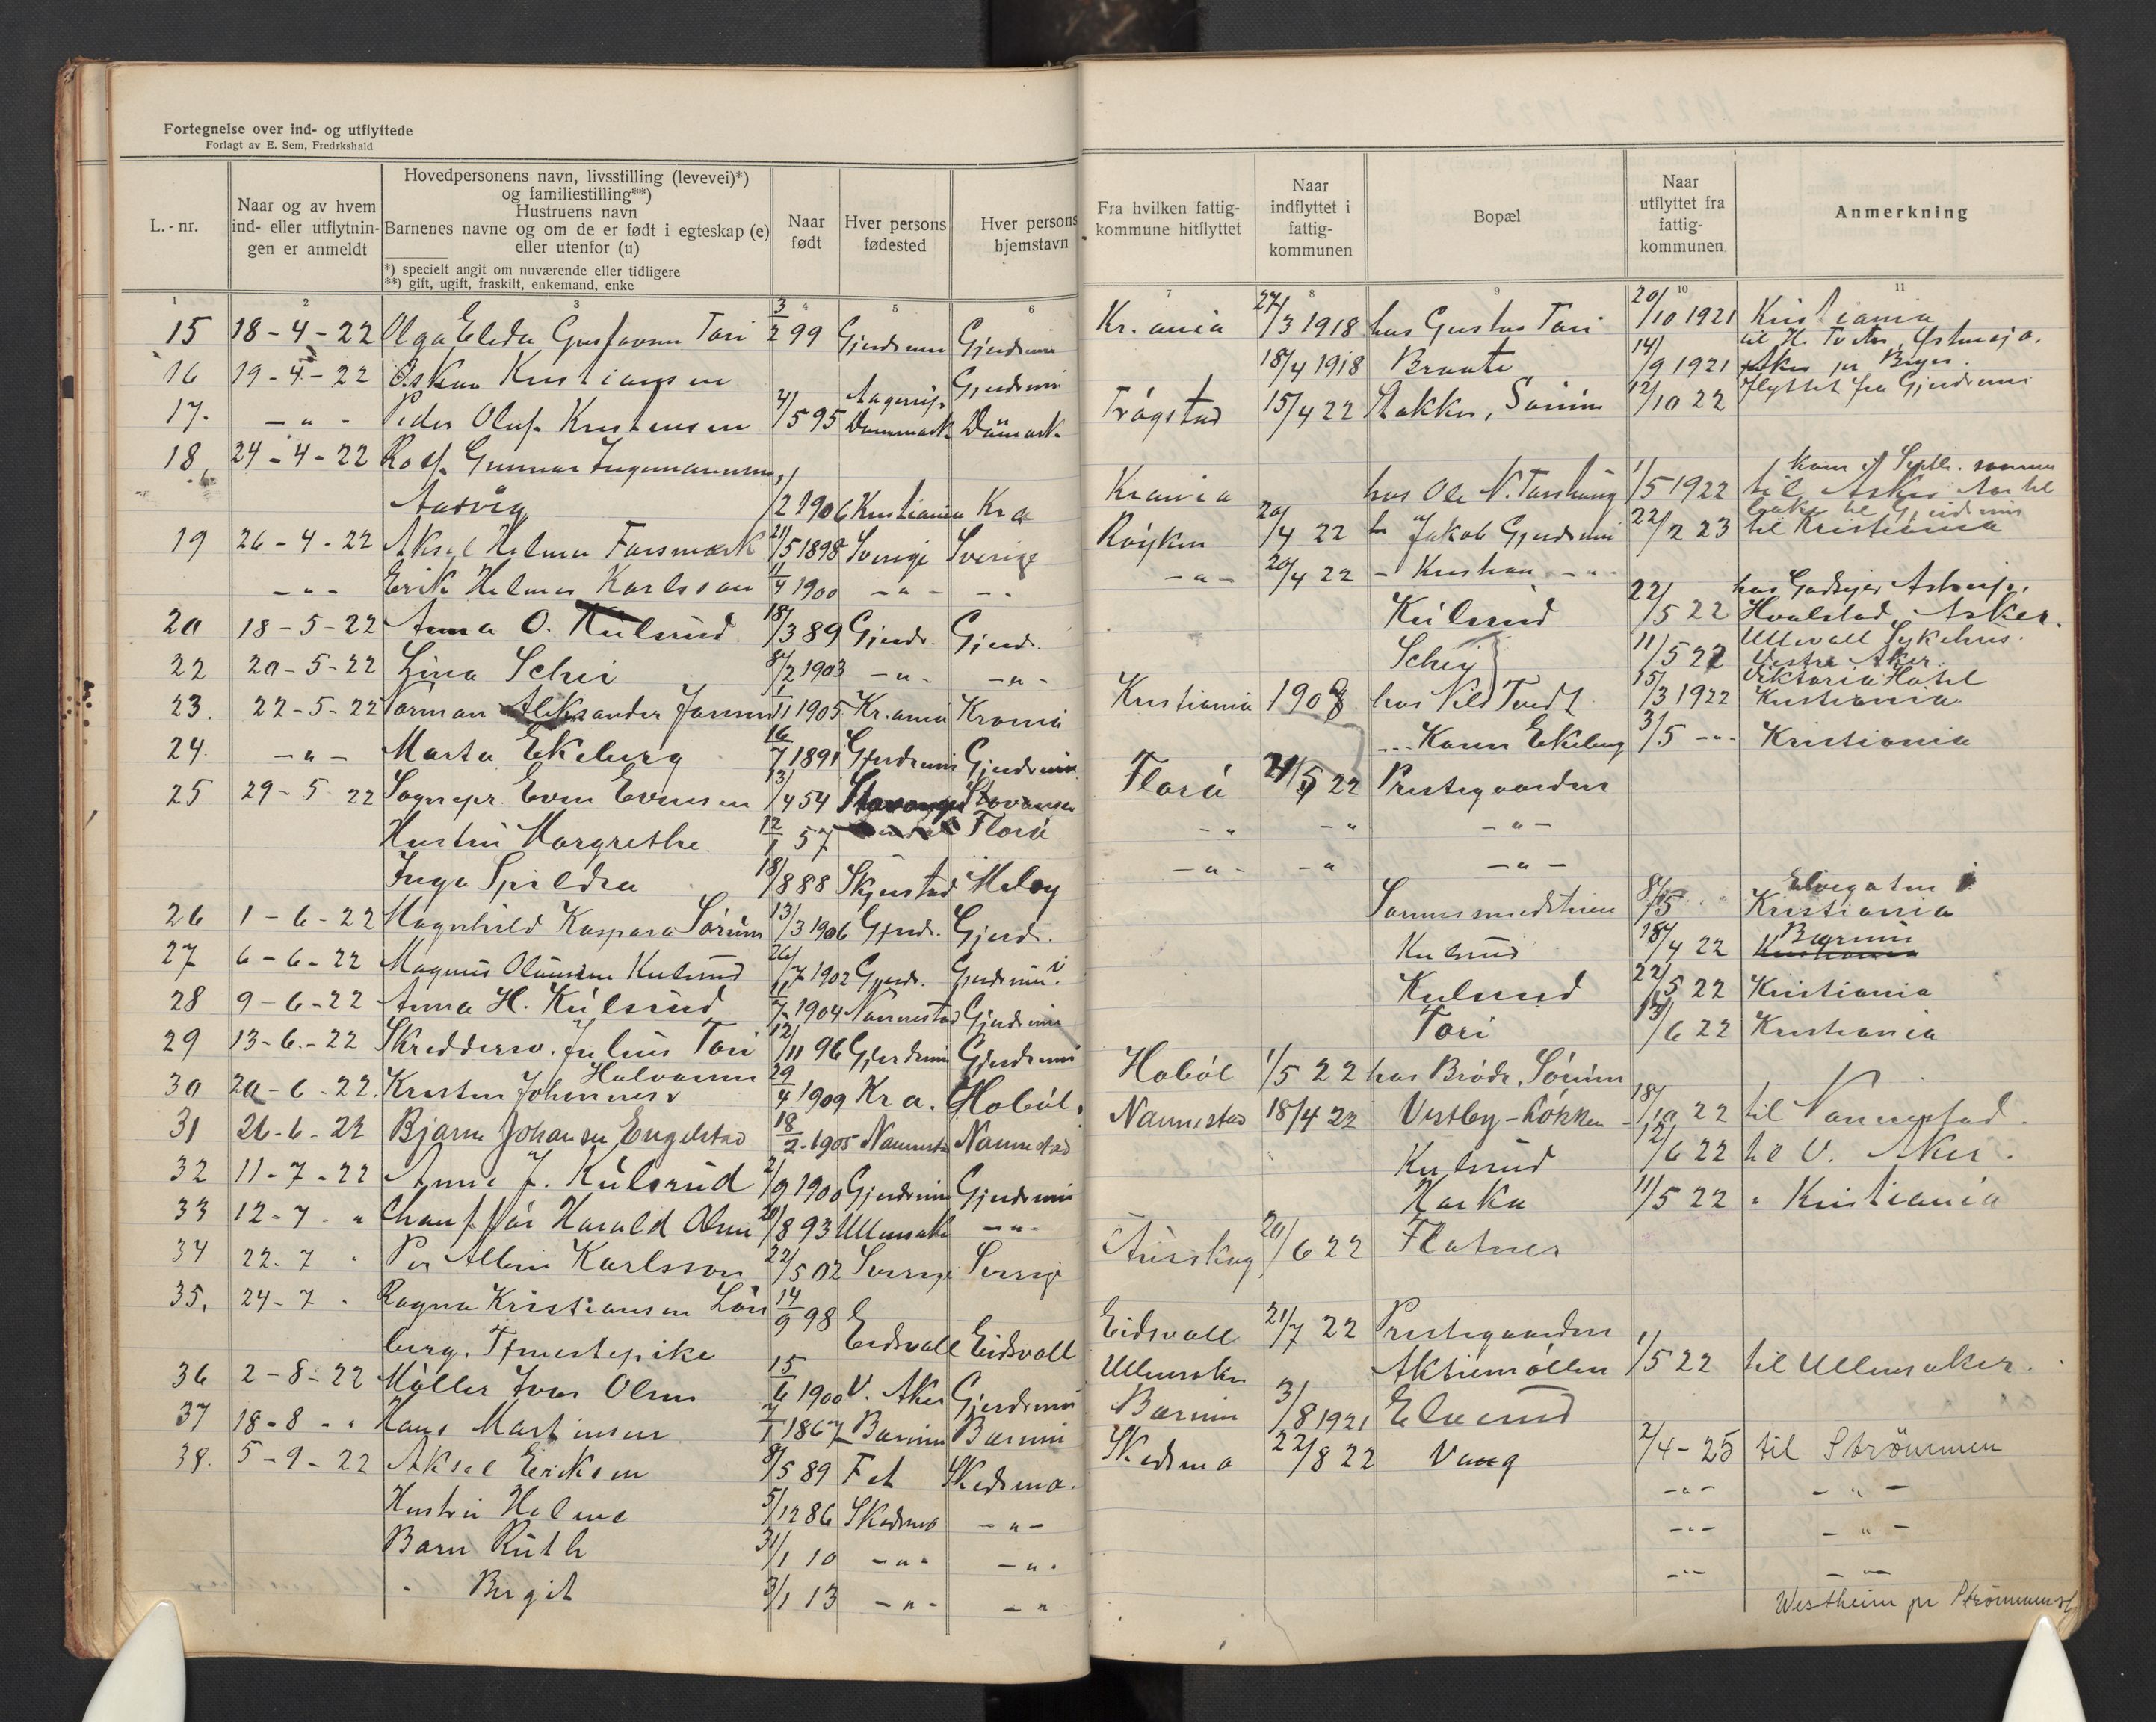 Fortegnelse over ind- og utflyttede
Forlagt av E. Sem, Fredrkshald
L.-nr.
Naar og av hvem ind- eller utflytningen er anmeldt
Hovedpersonens navn, livsstilling (levevei)*)
og familiestilling**)
Hustruens navn
Barnenes navne og om de er født i egteskap (e)
eller utenfor (u)
*) specielt angit om nuværende eller tidligere
**) gift, ugift, fraskilt, enkemand, enke
Naar født
Hver persons fødested
Hver persons hjemstavn
Fra hvilken fattigkommune hitflyttet
Naar indflyttet i fattigkommunen
Bopæl
Naar utflyttet fra fattigkommunen
Anmerkning
1 2 3 4 5 6 7 8 9 10 11
15 18-4-22 Olga Elida Gustavsen Tori 3/2 99 Gjerdrum Gjerdrum Kr.ania 27/3 1918 hos Gustav Tori 20/10 1921 Kristiania
16 19-4-22 Oskar Kristiansen Gjerdrum 18/4 1918 Braate 14/9 1921 til H. Østensjø, Aker pr Bryn.
17. -"- Peder Oluf Kristensen 4/5 95 Danmark Danmark Trøgstad 15/4 22 Stakker, Sørum 12/10 22 flyttet fra Gjerdrum
18. 24-4-22 Rolf Gunnar Ingemannsen
Aasvig 1/2 1906 Kristiania Kra Krania hos Ole N. 1/5 1922 til Asker
kom i Septb. samme Aar tilbake til Gjerdrum
19 26-4-22 Aksel Helmer Forsmark 21/5 1898 Sverige Sverige Røyken 20/4 22 h. Jakob Gjerdrum 22/2 23 til Kristiania
-"- Erik Helmer Karlsson 11/4 1900 -"- -"- -"- 20/4 22 - Kristian -"-
20 18-5-22 Anna O. Kulsrud 18/3 89 Gjerdr. Gjerdr. Kulsrud 22/5 22 hos Hvalstad Asker.
22 20-5-22 Lina Schei 8/2 1903 -"- -"- Schei 11/5 22 Ullevall Sykehus. Vestre Aker.
23. 22-5-22 Norman Aleksander Jansen 1/11 1905 Kr.ania Krania Kristiania 1908 hos Nils Tveit 15/3 1922 Viktoria Hotel Kristiania
24. -"- Marta Ekeberg 16/7 1891 Gjerdrum Gjerdrum -"- Karen Ekeberg 3/5 -"- Kristiania
25 29-5-22 Sognepr. Even Evensen 13/4 54 Stavanger Stavanger Florø 21/5 22 Prestegaarden
Hustru Margrethe 12/1 57 Florø -"- -"- -"-
Inga Spildra 18/8 88 Skjerstad Meløy -"- -"- -"-
26 1-6-22 Magnhild Kaspara Sørum 13/3 1906 Gjerdr. Gjerdr. 8/5 Elvegaten Kristiania
27 6-6-22 Magnus Olaussen Kulsrud 26/7 1902 Gjerdr. Gjerdrum. Kulsrud 18/4 22 Bærum Kristiania
28 9-6-22 Anna H. Kulsrud 11/7 1904 Nannestad Gjerdrum Kulsrud 22/5 22 Kristiania
29 13-6-22 Skreddersv. Julius Tori 12/11 96 Gjerdrum Gjerdrum Tori 13/6 22 Kristiania
30 20-6-22. Kristen Johannes Halvorsen 29/4 1909 Kra. Hobøl. Hobøl 1/5 22 hos Brødr. Sørum
31 26-6-22 Bjarne Johansen Engelstad 18/2-1905 Nannestad Nannestad Nannestad 18/4 22 Vestby-Løkken 18/10 22 til Nannestad.
32 11-7-22 Anne J. Kulsrud 2/9 1900 Gjerdrum Gjerdrum Kulsrud 12/6 22 til V. Aker.
33 12-7 " Chauffør Harald Olsen 20/8 93 Ullensaker -"- 11/5 22 " Kristiania
34 22-7 " Per Albin Karlsson 22/5 02 Sverige Sverige Aurskog 20/6 22 Flatner
35. 24-7 " Ragna Kristiansen Løn
berg. Tjenestepike 14/9 98 Eidsvoll Eidsvoll Eidsvoll 21/7 22 Prestegaarden
36 2-8-22 Møller Ivar Olsen 15/6 1900 V. Aker Gjerdrum Ullensaker Aktiemøllen 1/5 22 til Ullensaker.
37 18-8 -" Hans Martinsen 7/1 1867 Bærum Bærum Bærum 3/8 1921 Elvesrud
38. 5-9-22 Aksel Eriksen 8/5 89 Fet Skedsmo. Skedsmo 22/8 22 Vang 2/4-25 til Strømmen
Hustru Helene 5/12 86 Skedsmo -"- -"- -"-
Barn Ruth 31/1 10 -"- -"- -"- -"-
" Birgit 3/1 13 -"- -"- -"- -"-
Westheim pr Strømmen st